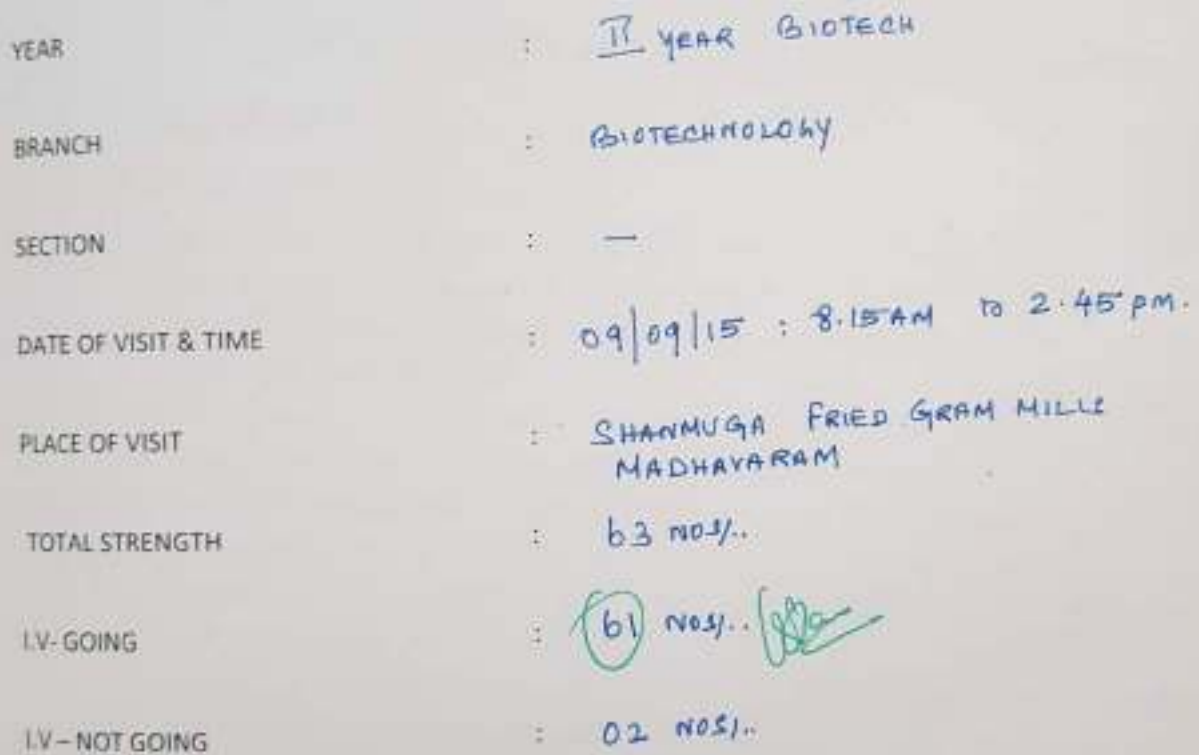 YEAR : II YEAR BIOTECH
BRANCH : BIOTECHNOLOGY
SECTION : —
DATE OF VISIT & TIME : 09/09/15 : 8.15 AM to 2.45 PM.
PLACE OF VISIT : SHANMUGA FRIED GRAM MILLS
MADHAVARAM
TOTAL STRENGTH : 63 NOS/..
I.V- GOING : 61 NOS/..
I.V – NOT GOING : 02 NOS/..